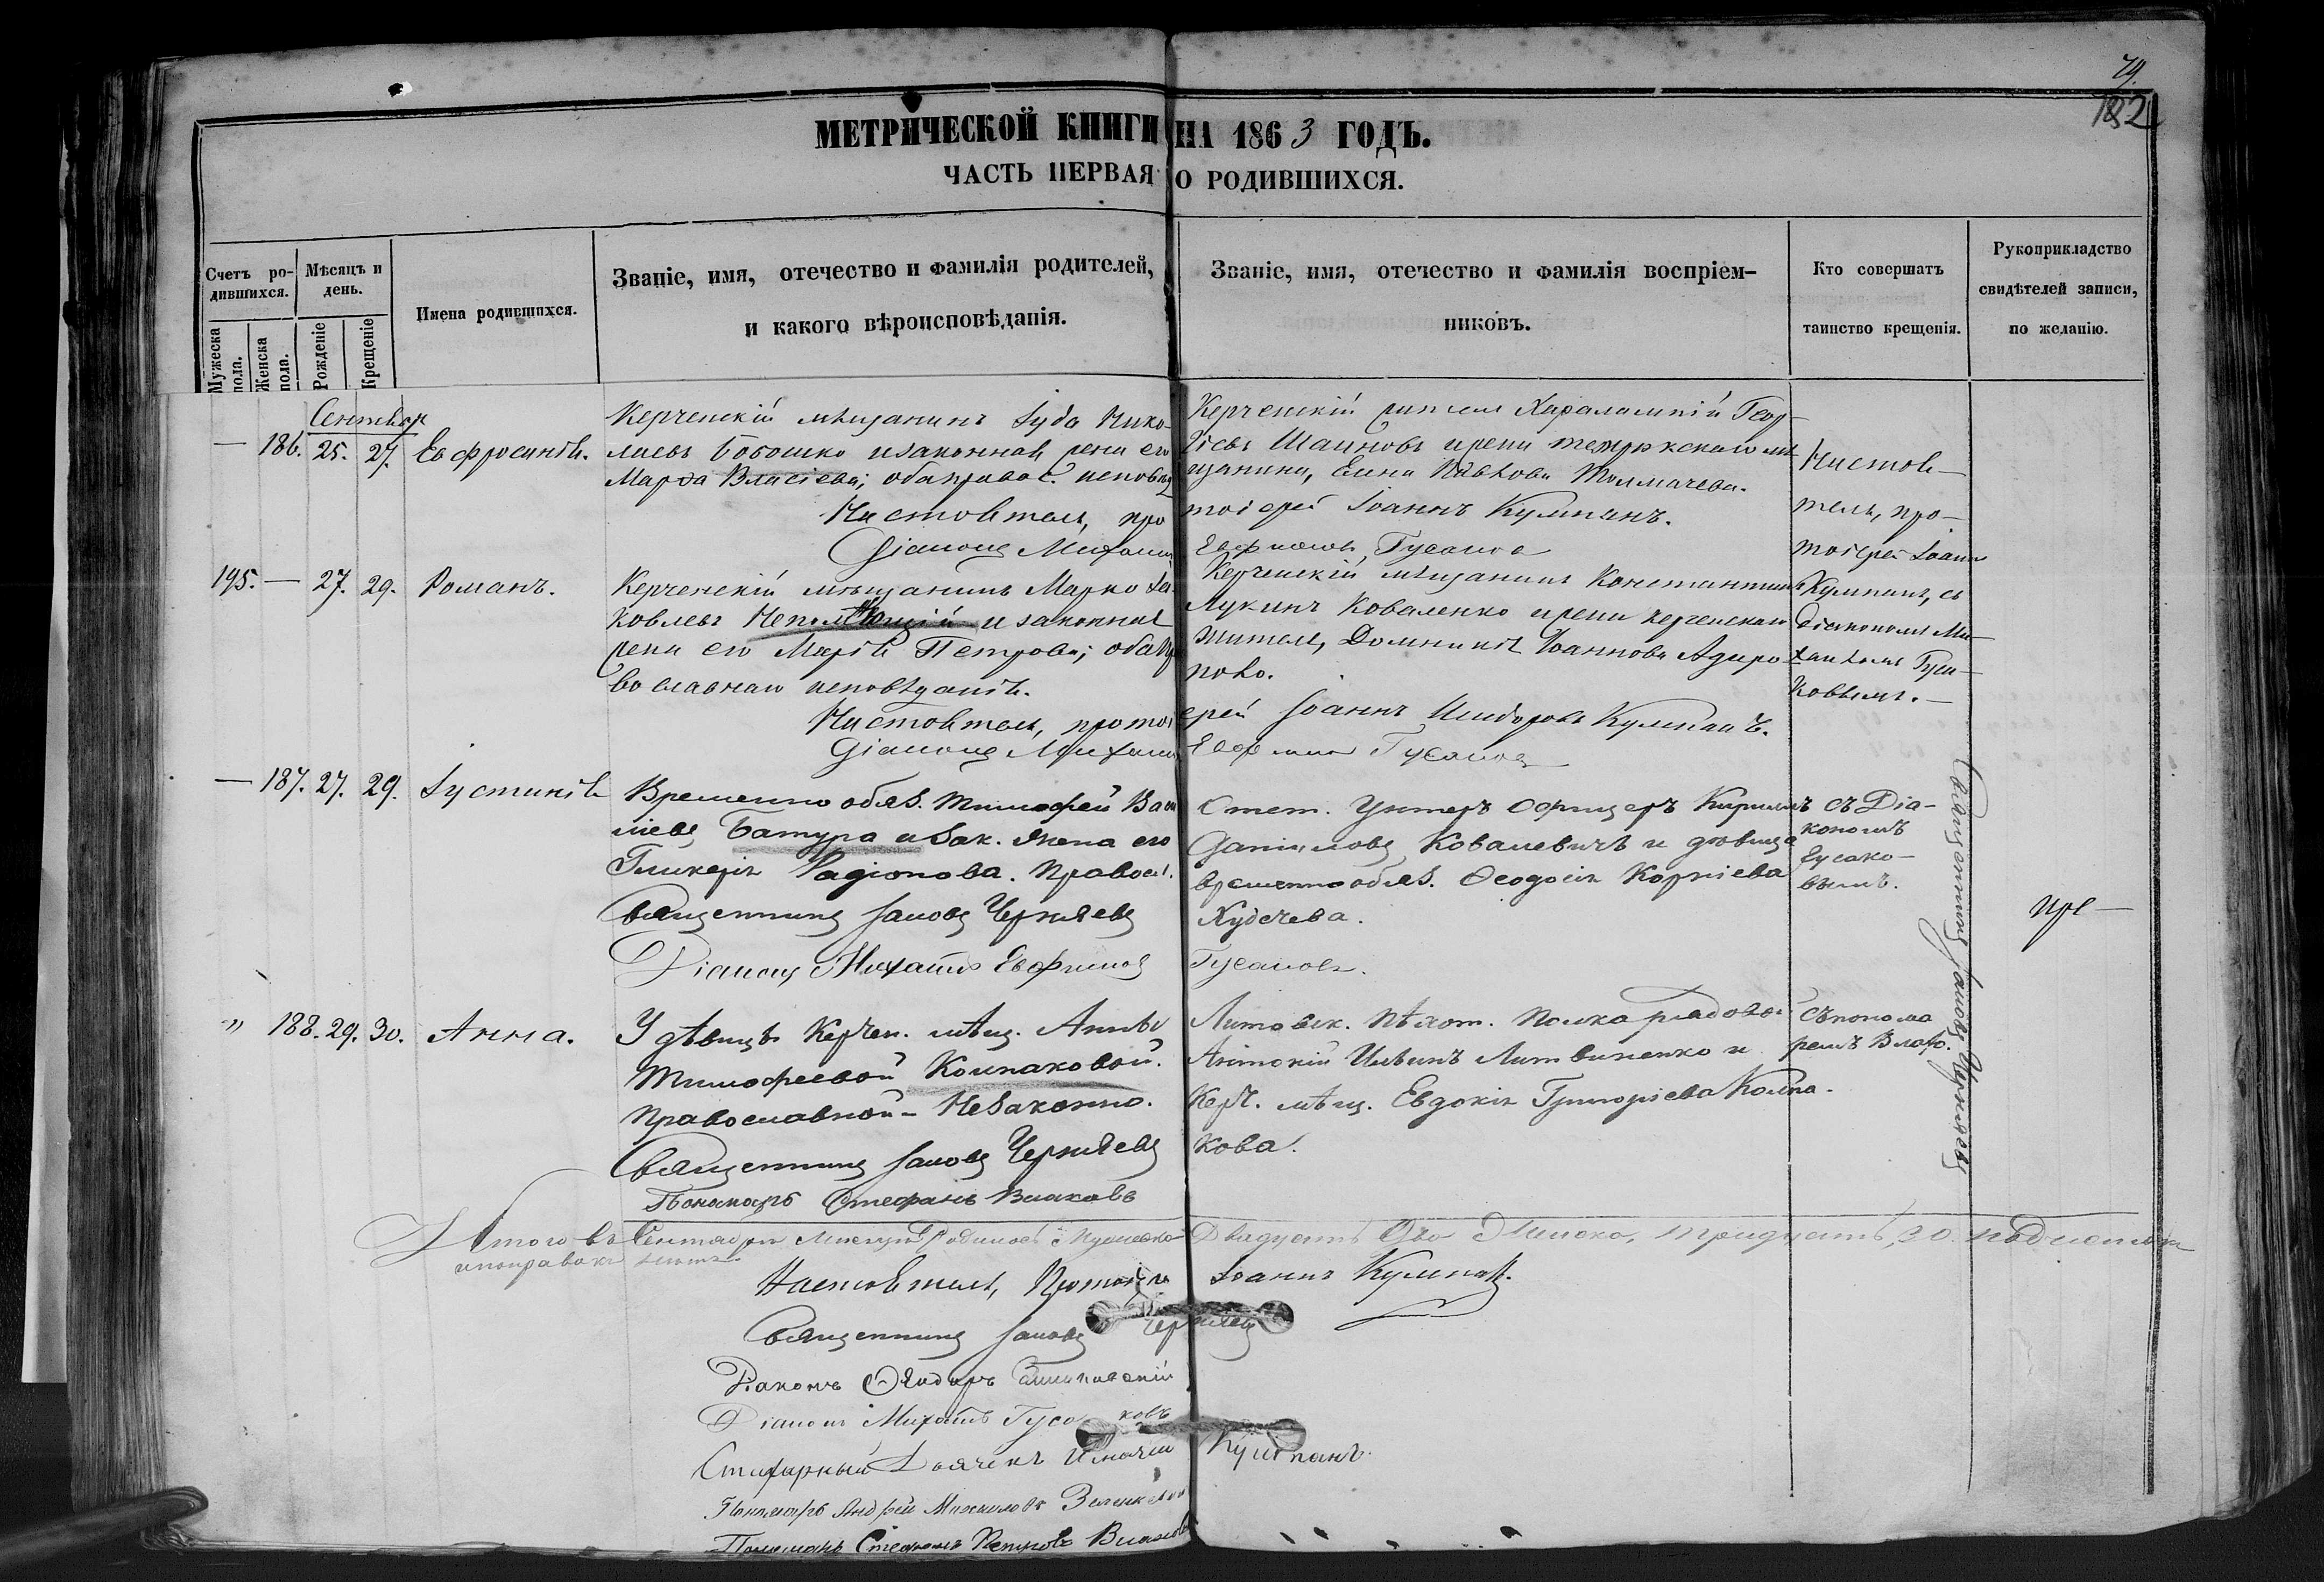 79.
182
МЕТРИЧЕСКОЙ КНИГИ НА 1863 ГОДЪ.
ЧАСТЬ ПЕРВАЯ О РОДИВШИХСЯ.
Счетъ ро-
дившихся.
Мужеска пола.
Женска пола.
Мѣсяцъ и
день.
Рожденіе
Крещеніе
Имена родившихся.
Званіе, имя, отечество и фамилія родителей,
и какого вѣроисповѣданія.
Званіе, имя, отечество и фамилія воспріем-
никовъ.
Кто совершатъ
таинство крещенія.
Рукоприкладство
свидѣтелей записи,
по желанію.
Сентябр
— 186. 25. 27. Евфросинія.
Керченскій мѣщанинъ Іуда Нико-
лаевъ Бобошко и законная жена его
Марѳа Власіева; оба правос. исповѣд
Настоятель, про
Діаконъ Михаилъ
Керченскій Харалампій Геор-
гіевъ Шаиновъ и жена темрюкскаго мѣ
щанина, Елена Толмачева.
тоіерей Іоаннъ Кумпанъ.
Евфимовъ Гусаков
Настоя-
тель, про-
тоіерей Іоанн
Кумпанъ, съ
діакономъ Ми-
хаиломъ Гуса-
ковымъ.
195. — 27. 29. Романъ.
Керченскій мѣщанинъ Марко Іа
ковлевъ и законная
жена его Марія Петрова; оба пра
вославнаго исповѣданія.
Настоятель, протоі
Діаконъ Михаилъ
Керченскій мѣщанинъ Константинъ
Лукинъ Коваленко и жена керченскаго
жителя, Домникія Іоаннова Адиро
пово.
ерей Іоаннъ Исидоровъ Кумпанъ.
Евфимов Гусаков
— 187. 27. 29. Іустинія
Временно обяз. Тимофей Васи
ліевъ Батура и зак. жена его
Гликерія Радіонова. Правосл.
Священникъ Іаковъ Черняевъ
Діаконъ Михаилъ Евфимовъ
Отст. Унтеръ Офицеръ Кириллъ
Даніиловъ Ковалевичъ и дѣвица
временно обяз. Ѳеодосія Корніева
Худечева.
Гусаковъ.
съ Діа-
кономъ
Гусако-
вымъ.
Священникъ Іаковъ Черняевъ
пре-
" 188. 29. 30. Анна.
У дѣвицы Керчен. мѣщ. Анны
Тимофеевой Колпаковой.
Православной - Незаконно.
Священникъ Іаковъ Черняевъ
Пономарь Стефанъ Влаховъ
Литовск. пѣхот. полка рядовой
Антоній Ильинъ Литвиненко и
Керч. мѣщ. Евдокія Григоріева Колпа-
кова.
съ понома
ремъ Влахо.
Итого въ Сентябрѣ Мѣсяцѣ Родилось Мужеска Двадцать Женска, тридцать, 30.
Настоятель, Протоіер Іоаннъ Кумпан.
Священникъ Іаковъ Черняевъ
Діаконъ
Діаконъ Михаилъ Гусаковъ
Стихарный Дьячекъ Кумпанъ.
Пономарь Андрей Михаиловъ
Пономарь Стефанъ Петровъ Влахов